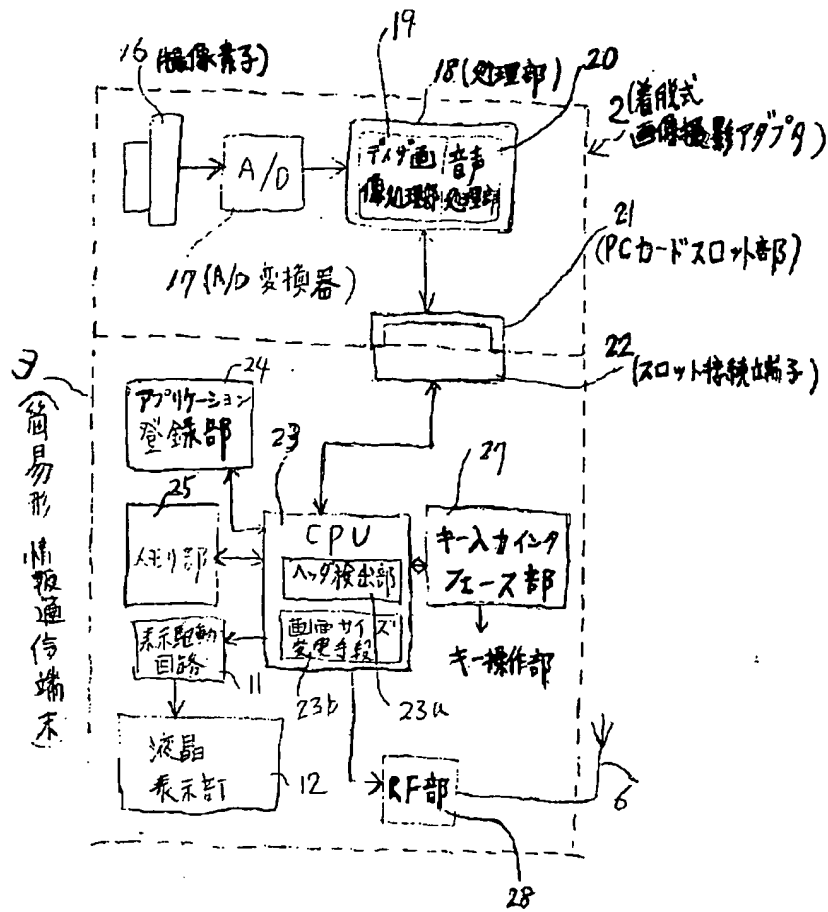 16 (撮像素子)
19
18 (処理部)
20
2 (着脱式
画像撮影アダプタ)
A/D
ディジ画
像処理部
音声
処理部
17 (A/D変換器)
21
(PCカードスロット部)
22
(スロット接続端子)
3
(簡易形情報通信端末)
24
アプリケーション
登録部
23
27
25
メモリ部
CPU
ヘッダ検出部
画面サイズ
変更手段
キー入力インタ
フェース部
キー操作部
表示駆動
回路
11
23b
23a
液晶
表示部
12
RF部
6
28